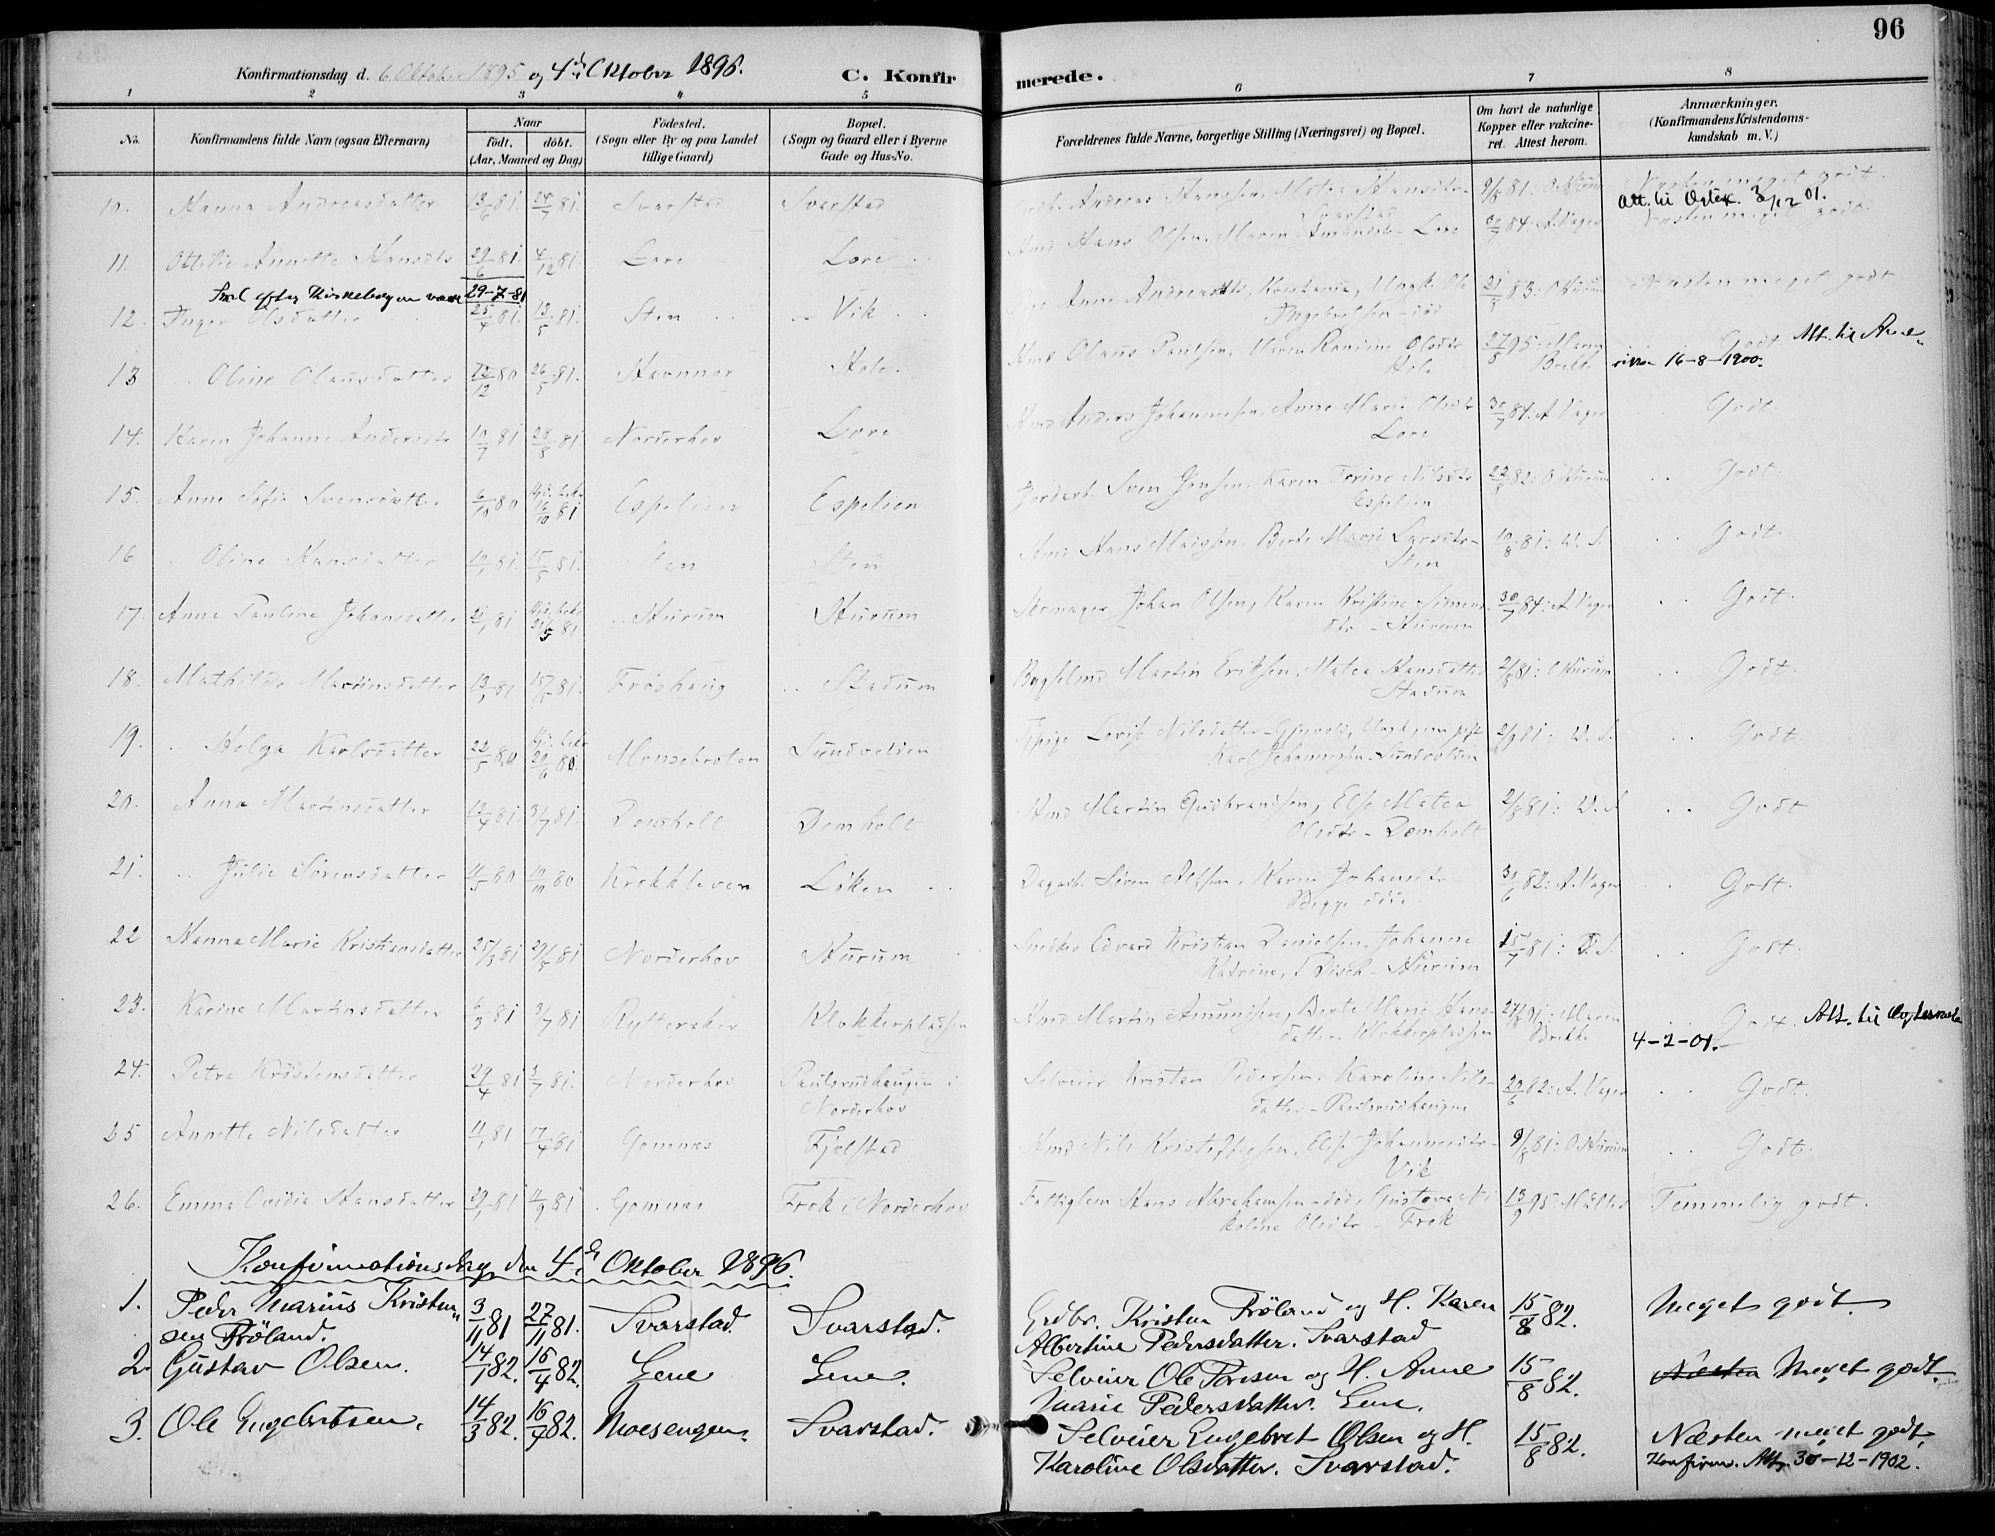 96
Konfirmationsdag d. 6 Oktober 1895 og 4de Oktober 1896.
C. Konfirmerede.
1 2 3 4 5 6 7 8
No.
Konfirmandens fulde Navn (ogsaa Efternavn)
Naar
født. døbt.
(Aar, Maaned og Dag)
Fødested.
(Sogn eller By og paa Landet
tillige Gaard)
Bopæl.
(Sogn og Gaard eller i Byerne
Gade og Hus-No.
Forældrenes fulde Navne, borgerlige Stilling (Næringsvei) og Bopæl.
Om havt de naturlige
Kopper eller vakcine-
ret. Attest herom.
Anmærkninger.
(Konfirmandens Kristendoms-
kundskab m. V.)
10. Hanna Andreasdatter 13/6 81. 24/7 81. Svarstad Svarstad Andreas Hansen, Matea Hansdtr. Svarstad 9/8 81: O. Hurum Næsten meget godt.
Att. til Ogtesk. 3/12 01.
11. Ottilie Annette Hansdtr 29/6 81. 4/12 81. Lore Lore Kmd Hans Olsen, Maren Amundsdtr Lore 30/7 84: A. Vager Næsten meget godt.
Skal efter Kirkebogen være 29-7-81
12. Inger Olsdatter 25/4 81. 13/5 81. Sten Vik Anne Andreasdtr, Ungk. Ole
Ingebretsen - død 21/5 83: O Hurum Næsten meget godt
13 Oline Olausdatter 12/12 80 26/5 81. Havnnor Hole Kmd Olaus Paulsen, Maren Randine Olsdtr
Hole 27/5 95: Maren Brekke Godt. Att. til Ame-
rika 16-8-1900.
14. Karen Johanne Andersdtr 10/7 81 28/8 81 Norderhov Lore Kmd Anders Johannesen, Anne Marie Olsdtr
Lore 30/7 84: A Vager Godt.
15. Anne Sofie Svensdatter 6/10 80 16/10 81 Espelien Espelien Jordarb. Sven Jensen, Karen Torine Nilsdtr
Espelien 22/8 82: O Hurum Godt.
16 Oline Hansdatter 10/1 81. 15/5 81. Sten Sten Kmd Hans Madssen, Berte Marie Larsdtr
Sten 10/8 81: Godt.
17. Anne Pauline Johansdatter 2/1 81 5 81 Hurum Hurum Skomager Johan Olsen, Karen Kristine Simens-
dtr - Hurum 30/7 84: A. Vager Godt.
18. Mathilde Martinsdatter 13/1 81 81. Frøshaug Stadum Bygselmd Martin Eriksen, Matea Hansdatter
Stadum 2/8 81: O Hurum Godt.
19. Helga Karlsdatter 22/5 80 20/6 80. Monsebroten Sundvolden Tjpige Lovise Nilsdatter
Karl Johannesen Sundvolden Godt.
20. Anna Martinsdatter 12/4 81. 3/7 81. Domholt Domholt Kmd Martin Gudbrandsen, Else Matea
Olsdtr - Domholt Godt
21. Julie Sørensdatter 11/5 80 10/10 80 Krokkleven Løken Dagarb. Søren Karen Johansdtr
Begge døde. 30/6 82: A. Vager Godt.
22 Hanna Marie Kristiansdatter 25/3 81 29/5 81 Norderhov Hurum Snedker Edvard Kristian Danielsen, Johanne
Katrine, f. Disch - Hurum 15/7 81: Godt.
23. Karine Martinsdatter 6/3 81 3/7 81 Rytteraker Klokkerpladsen Kmd Martin Amundsen, Berte Marie Hans-
datter Klokkerpladsen Maren Brekke Godt. Att. til Ægteskab
4-2-01.
24. Petra Kristensdatter 29/4 81 3/7 81. Norderhov Paulsrudhaugen i
Norderhov Selveier Kristen Pedersen, Karoline Nils-
datter - Paulsrudhaugen 20/6 82: A. Vager Godt.
25 Annette Nilsdatter 11/1 81 17/4 81 Gomnæs Fjelstad Kmd Nils Kristoffersen, Else Johannesdtr
Vik 9/8 81: O Hurum Godt.
26. Emma Ovidia Hansdatter 29/1 81 11/9 81 Gomnæs Frok i Norderhov Fattiglem Hans Abrahamsen - død, Gustava Ni-
koline Olsdtr - Frok 13/9 95: Møller Temmelig godt.
Konfirmationsdag den 4de Oktober 1896.
1. Peder Marius Kristen-
sen Frøland. 3/11 81 27/11 81. Svarstad. Svarstad. Grdbr. Kristen Frøland og H. Karen
Albertine Pedersdatter. Svarstad 15/8 82. Meget godt.
2. Gustav Olsen. 14/1 82. 15/4 82. Gene Gene. Selveier Ole Toresen og H. Anne
Marie Pedersdatter. Gene. 15/8 82. Næsten Meget godt.
3. Ole Engebretsen. 14/3 82. 16/7 82. Moesengen. Svarstad. Selveier Engebret Olsen og H.
Karoline Olsdatter. Svarstad. 15/8 82. Næsten meget godt.
Konfirm. Att. 30-12-1902.